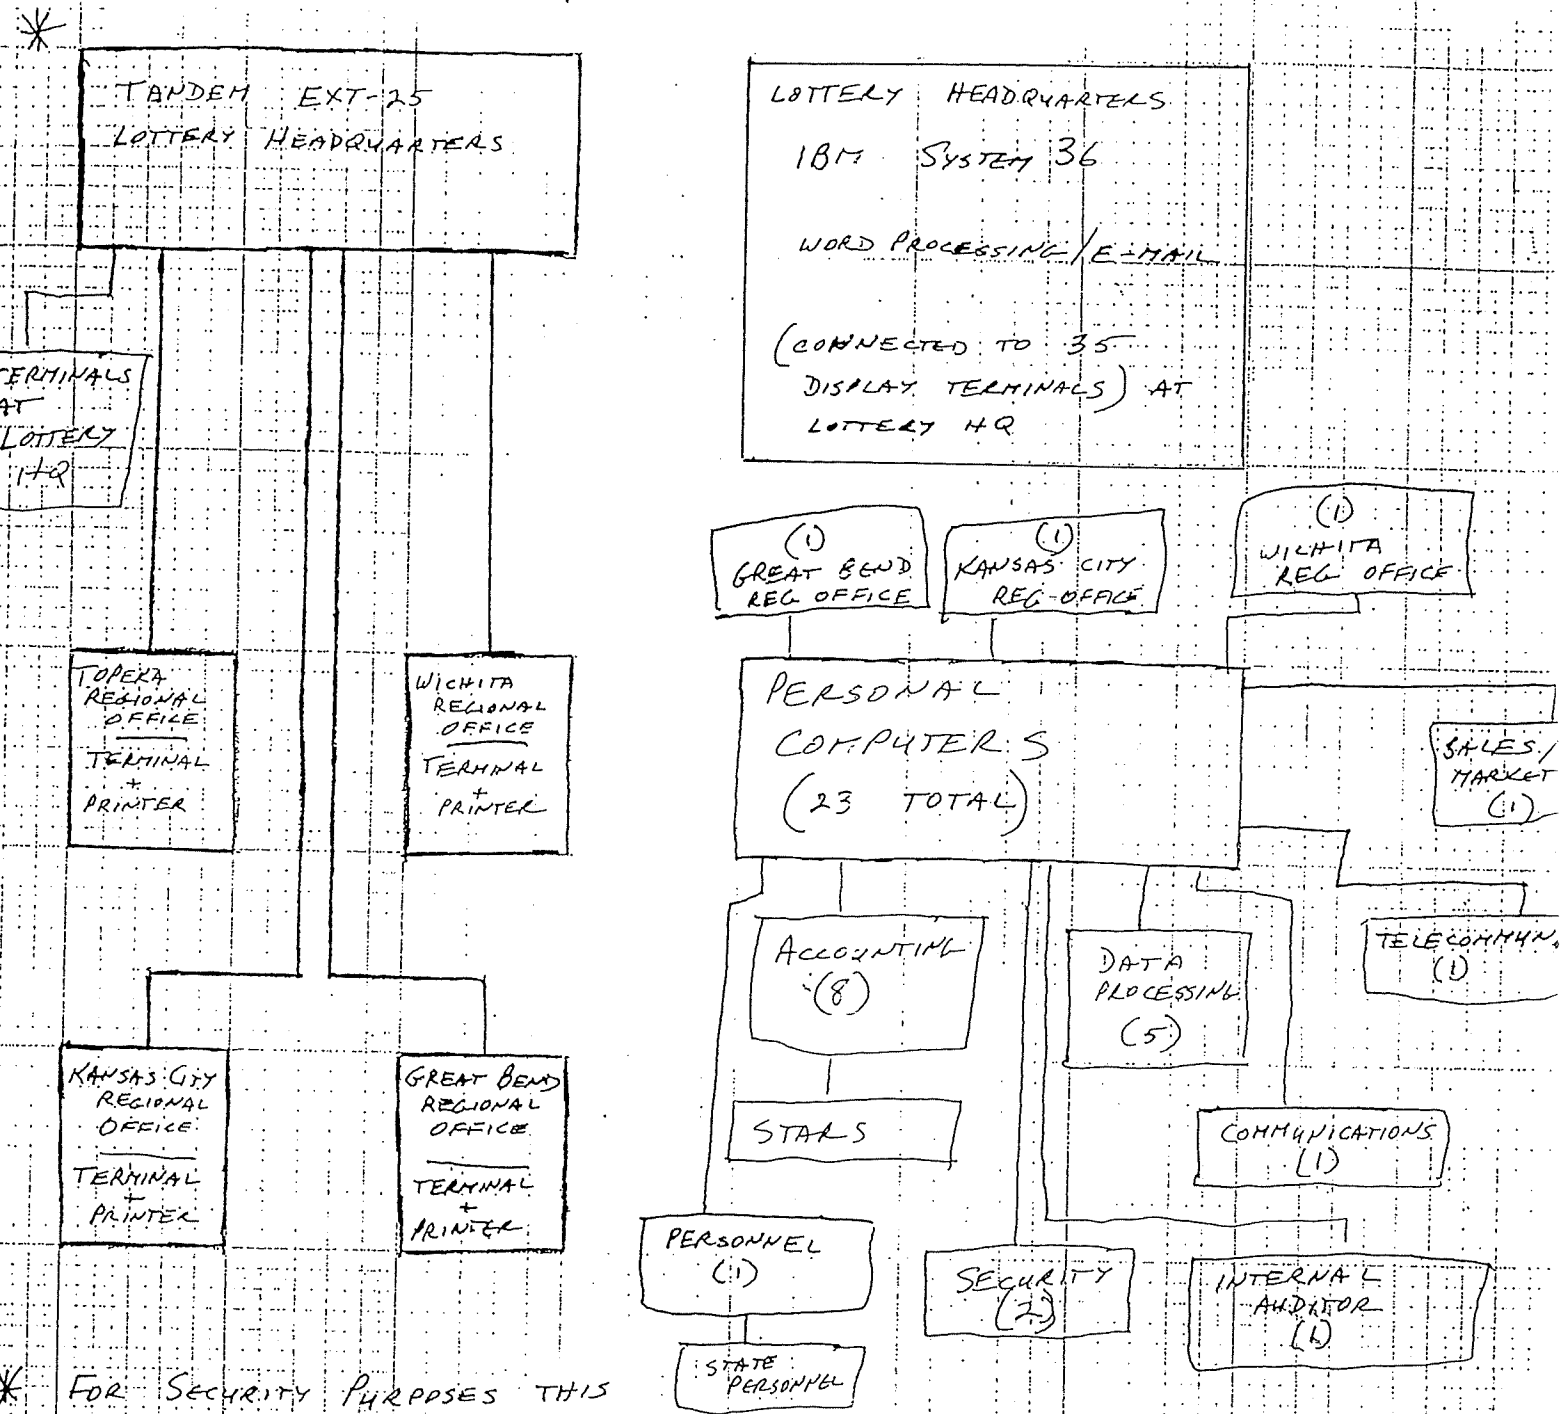 *
TANDEM EXT-25
LOTTERY HEADQUARTERS
TERMINALS
AT
LOTTERY
HQ
TOPEKA
REGIONAL
OFFICE
TERMINAL
+
PRINTER
WICHITA
REGIONAL
OFFICE
TERMINAL
+
PRINTER
KANSAS CITY
REGIONAL
OFFICE
TERMINAL
+
PRINTER
GREAT BEND
REGIONAL
OFFICE
TERMINAL
+
PRINTER
* FOR SECURITY PURPOSES THIS
LOTTERY HEADQUARTERS
IBM SYSTEM 36
WORD PROCESSING/E-MAIL
(CONNECTED TO 35
DISPLAY TERMINALS) AT
LOTTERY HQ
(1)
GREAT BEND
REG OFFICE
(1)
KANSAS CITY
REG-OFFICE
(1)
WICHITA
REG OFFICE
PERSONAL
COMPUTERS
(23 TOTAL)
SALES/
MARKET
(1)
TELECOMMUN.
(1)
ACCOUNTING
(8)
STARS
DATA
PROCESSING
(5)
COMMUNICATIONS
(1)
PERSONNEL
(1)
STATE
PERSONNEL
SECURITY
(2)
INTERNAL
AUDITOR
(1)